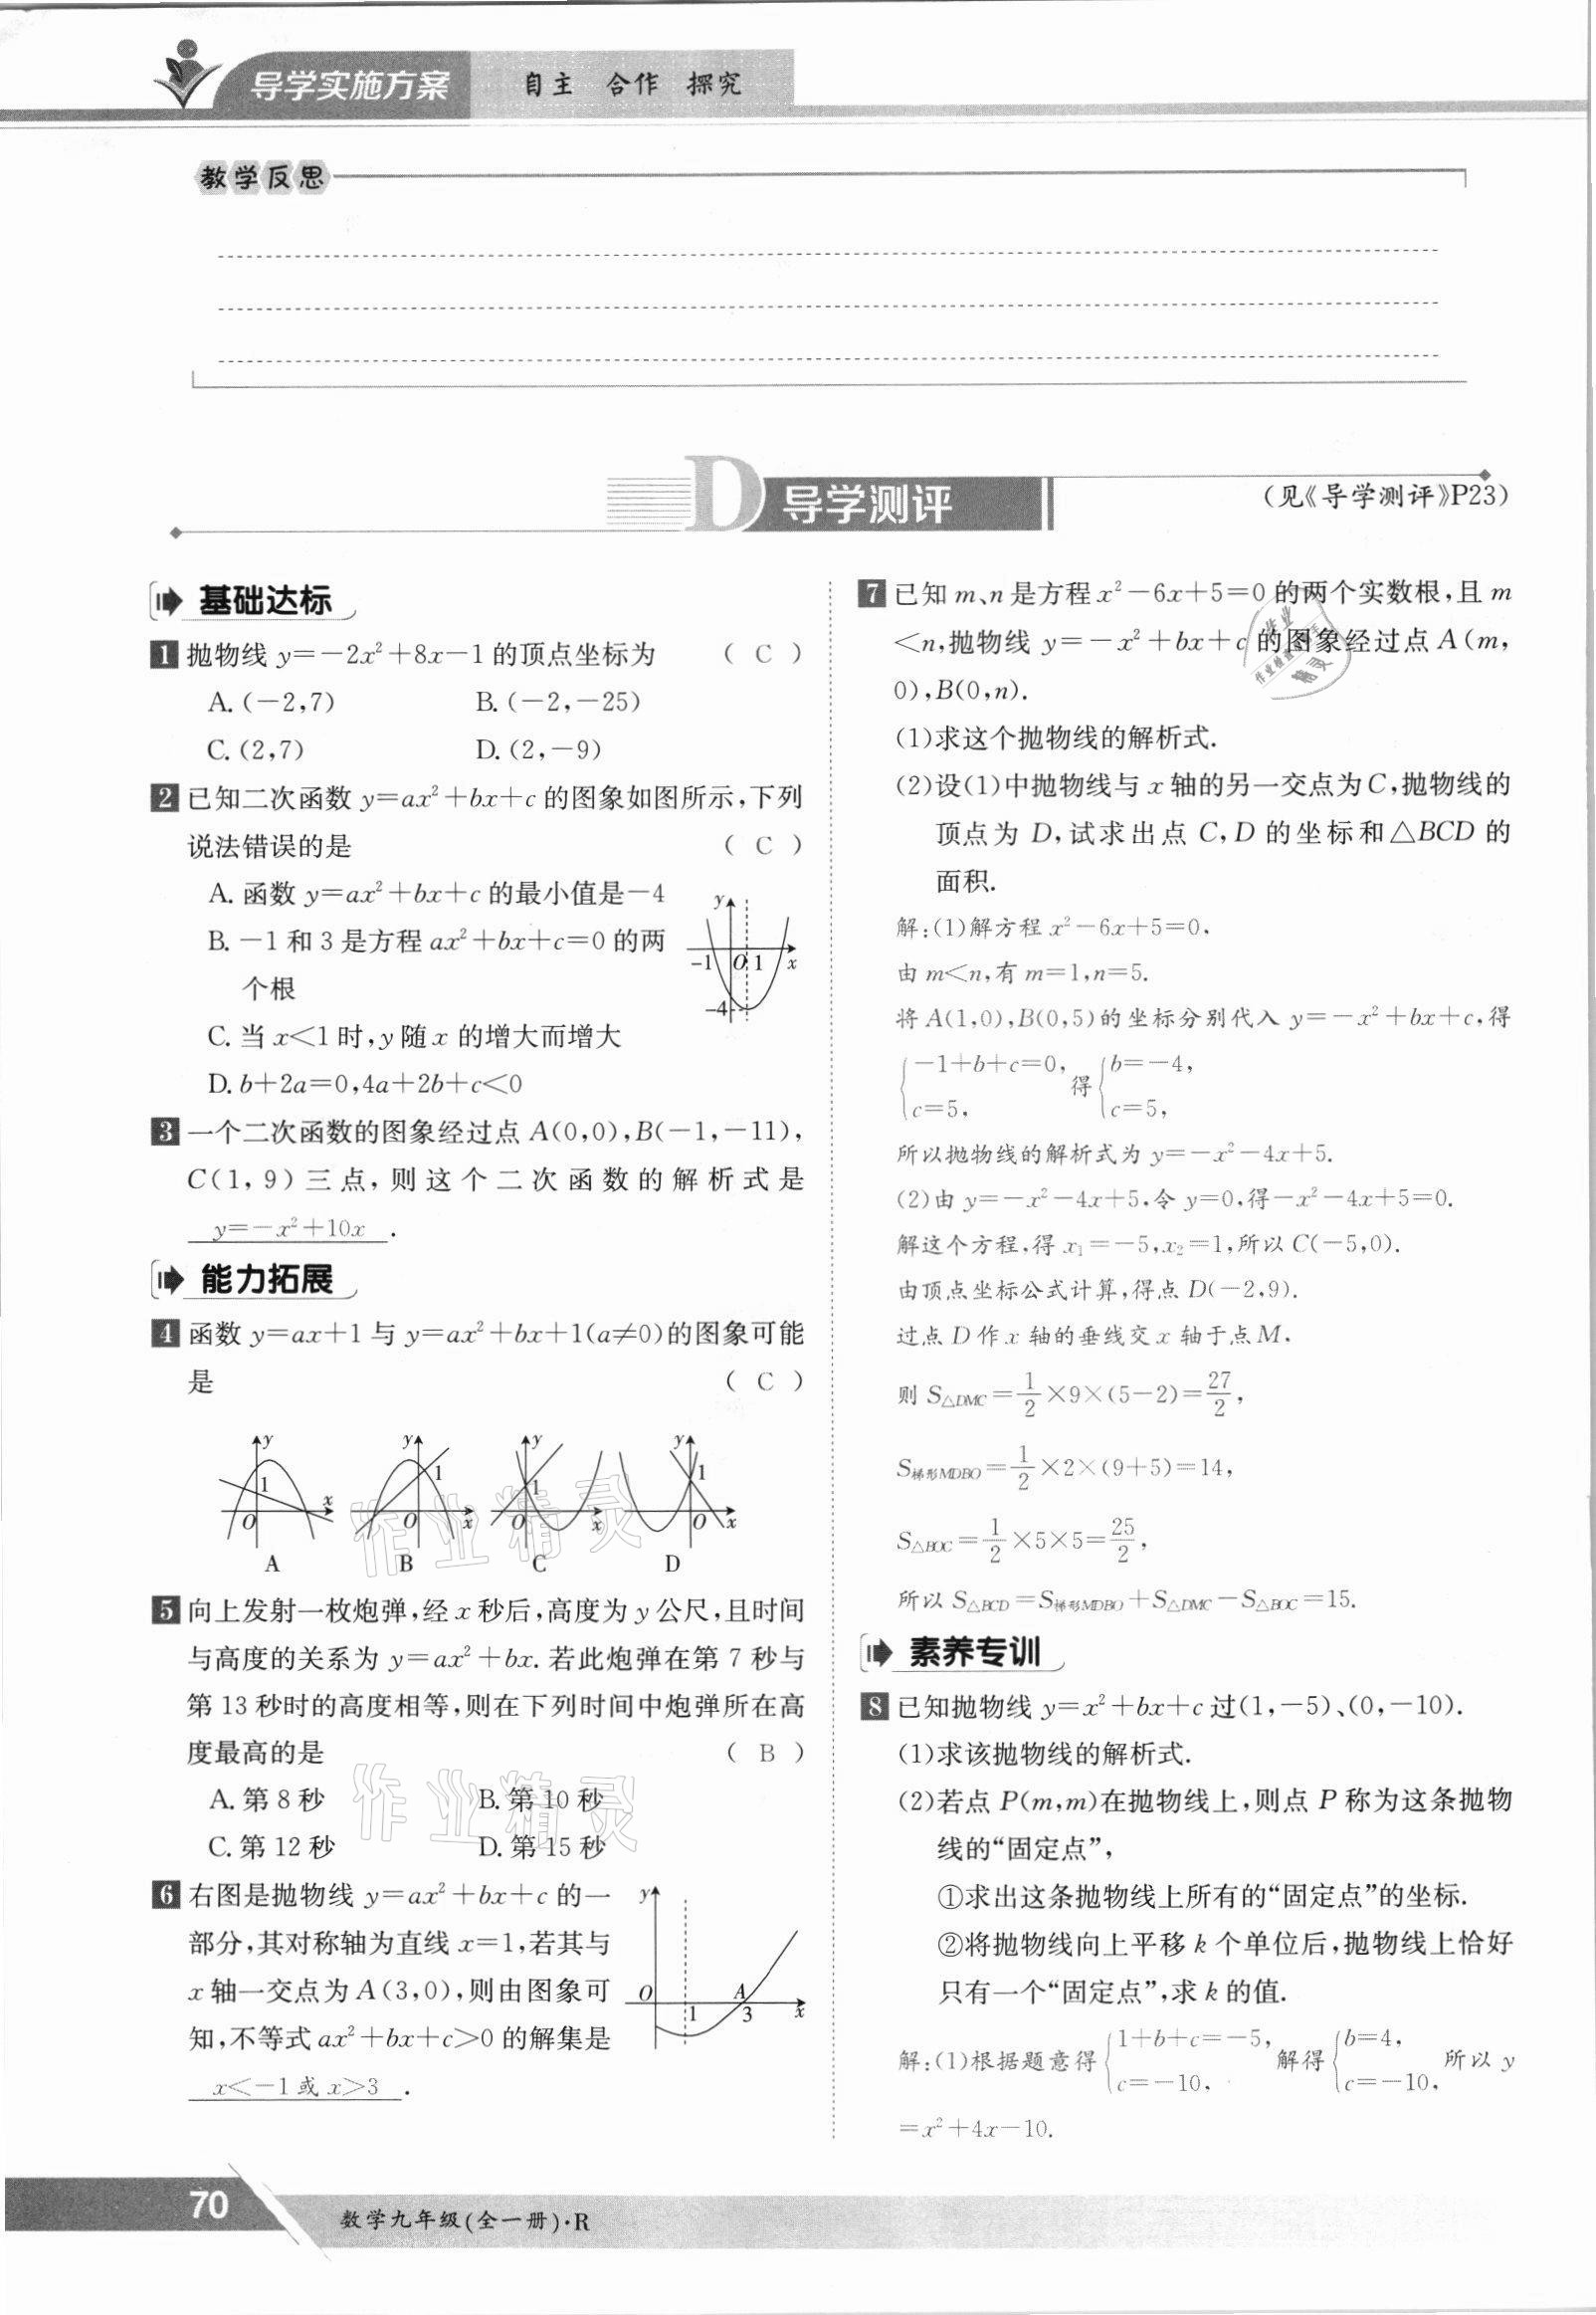 导学实施方案 自主 合作 探究
教学反思
D 导学测评
(见《导学测评》P23)
基础达标
1 抛物线 y=-2x²+8x-1 的顶点坐标为 ( C )
A. (-2,7) B. (-2,-25)
C. (2,7) D. (2,-9)
2 已知二次函数 y=ax²+bx+c 的图象如图所示,下列
说法错误的是 ( C )
A. 函数 y=ax²+bx+c 的最小值是-4
B. -1 和 3 是方程 ax²+bx+c=0 的两
个根
C. 当 x<1 时,y 随 x 的增大而增大
D. b+2a=0,4a+2b+c<0
y
-1 O 1 x
-4
3 一个二次函数的图象经过点 A(0,0),B(-1,-11),
C(1,9)三点,则这个二次函数的解析式是
y=-x²+10x .
能力拓展
4 函数 y=ax+1 与 y=ax²+bx+1(a≠0)的图象可能
是 ( C )
y y y y
1 1 1 1
O x O x O x O x
A B C D
5 向上发射一枚炮弹,经 x 秒后,高度为 y 公尺,且时间
与高度的关系为 y=ax²+bx. 若此炮弹在第 7 秒与
第 13 秒时的高度相等,则在下列时间中炮弹所在高
度最高的是 ( B )
A. 第 8 秒 B. 第 10 秒
C. 第 12 秒 D. 第 15 秒
6 右图是抛物线 y=ax²+bx+c 的一
部分,其对称轴为直线 x=1,若其与
x 轴一交点为 A(3,0),则由图象可
知,不等式 ax²+bx+c>0 的解集是
x<-1 或 x>3 .
y
O A
1 3 x
7 已知 m、n 是方程 x²-6x+5=0 的两个实数根,且 m
<n,抛物线 y=-x²+bx+c 的图象经过点 A(m,
0),B(0,n).
(1)求这个抛物线的解析式.
(2)设(1)中抛物线与 x 轴的另一交点为 C,抛物线的
顶点为 D,试求出点 C,D 的坐标和△BCD 的
面积.
解:(1)解方程 x²-6x+5=0.
由 m<n,有 m=1,n=5.
将 A(1,0),B(0,5)的坐标分别代入 y=-x²+bx+c,得
{-1+b+c=0, c=5, 得 {b=-4, c=5,
所以抛物线的解析式为 y=-x²-4x+5.
(2)由 y=-x²-4x+5,令 y=0,得-x²-4x+5=0.
解这个方程,得 x₁=-5,x₂=1,所以 C(-5,0).
由顶点坐标公式计算,得点 D(-2,9).
过点 D 作 x 轴的垂线交 x 轴于点 M.
则 S△DMC=1/2×9×(5-2)=27/2,
S梯形MDBO=1/2×2×(9+5)=14,
S△BOC=1/2×5×5=25/2,
所以 S△BCD=S梯形MDBO+S△DMC-S△BOC=15.
素养专训
8 已知抛物线 y=x²+bx+c 过(1,-5)、(0,-10).
(1)求该抛物线的解析式.
(2)若点 P(m,m)在抛物线上,则点 P 称为这条抛物
线的“固定点”,
①求出这条抛物线上所有的“固定点”的坐标.
②将抛物线向上平移 k 个单位后,抛物线上恰好
只有一个“固定点”,求 k 的值.
解:(1)根据题意得 {1+b+c=-5, c=-10, 解得 {b=4, c=-10, 所以 y
=x²+4x-10.
作业精灵
作业精灵
70 数学九年级(全一册)·R